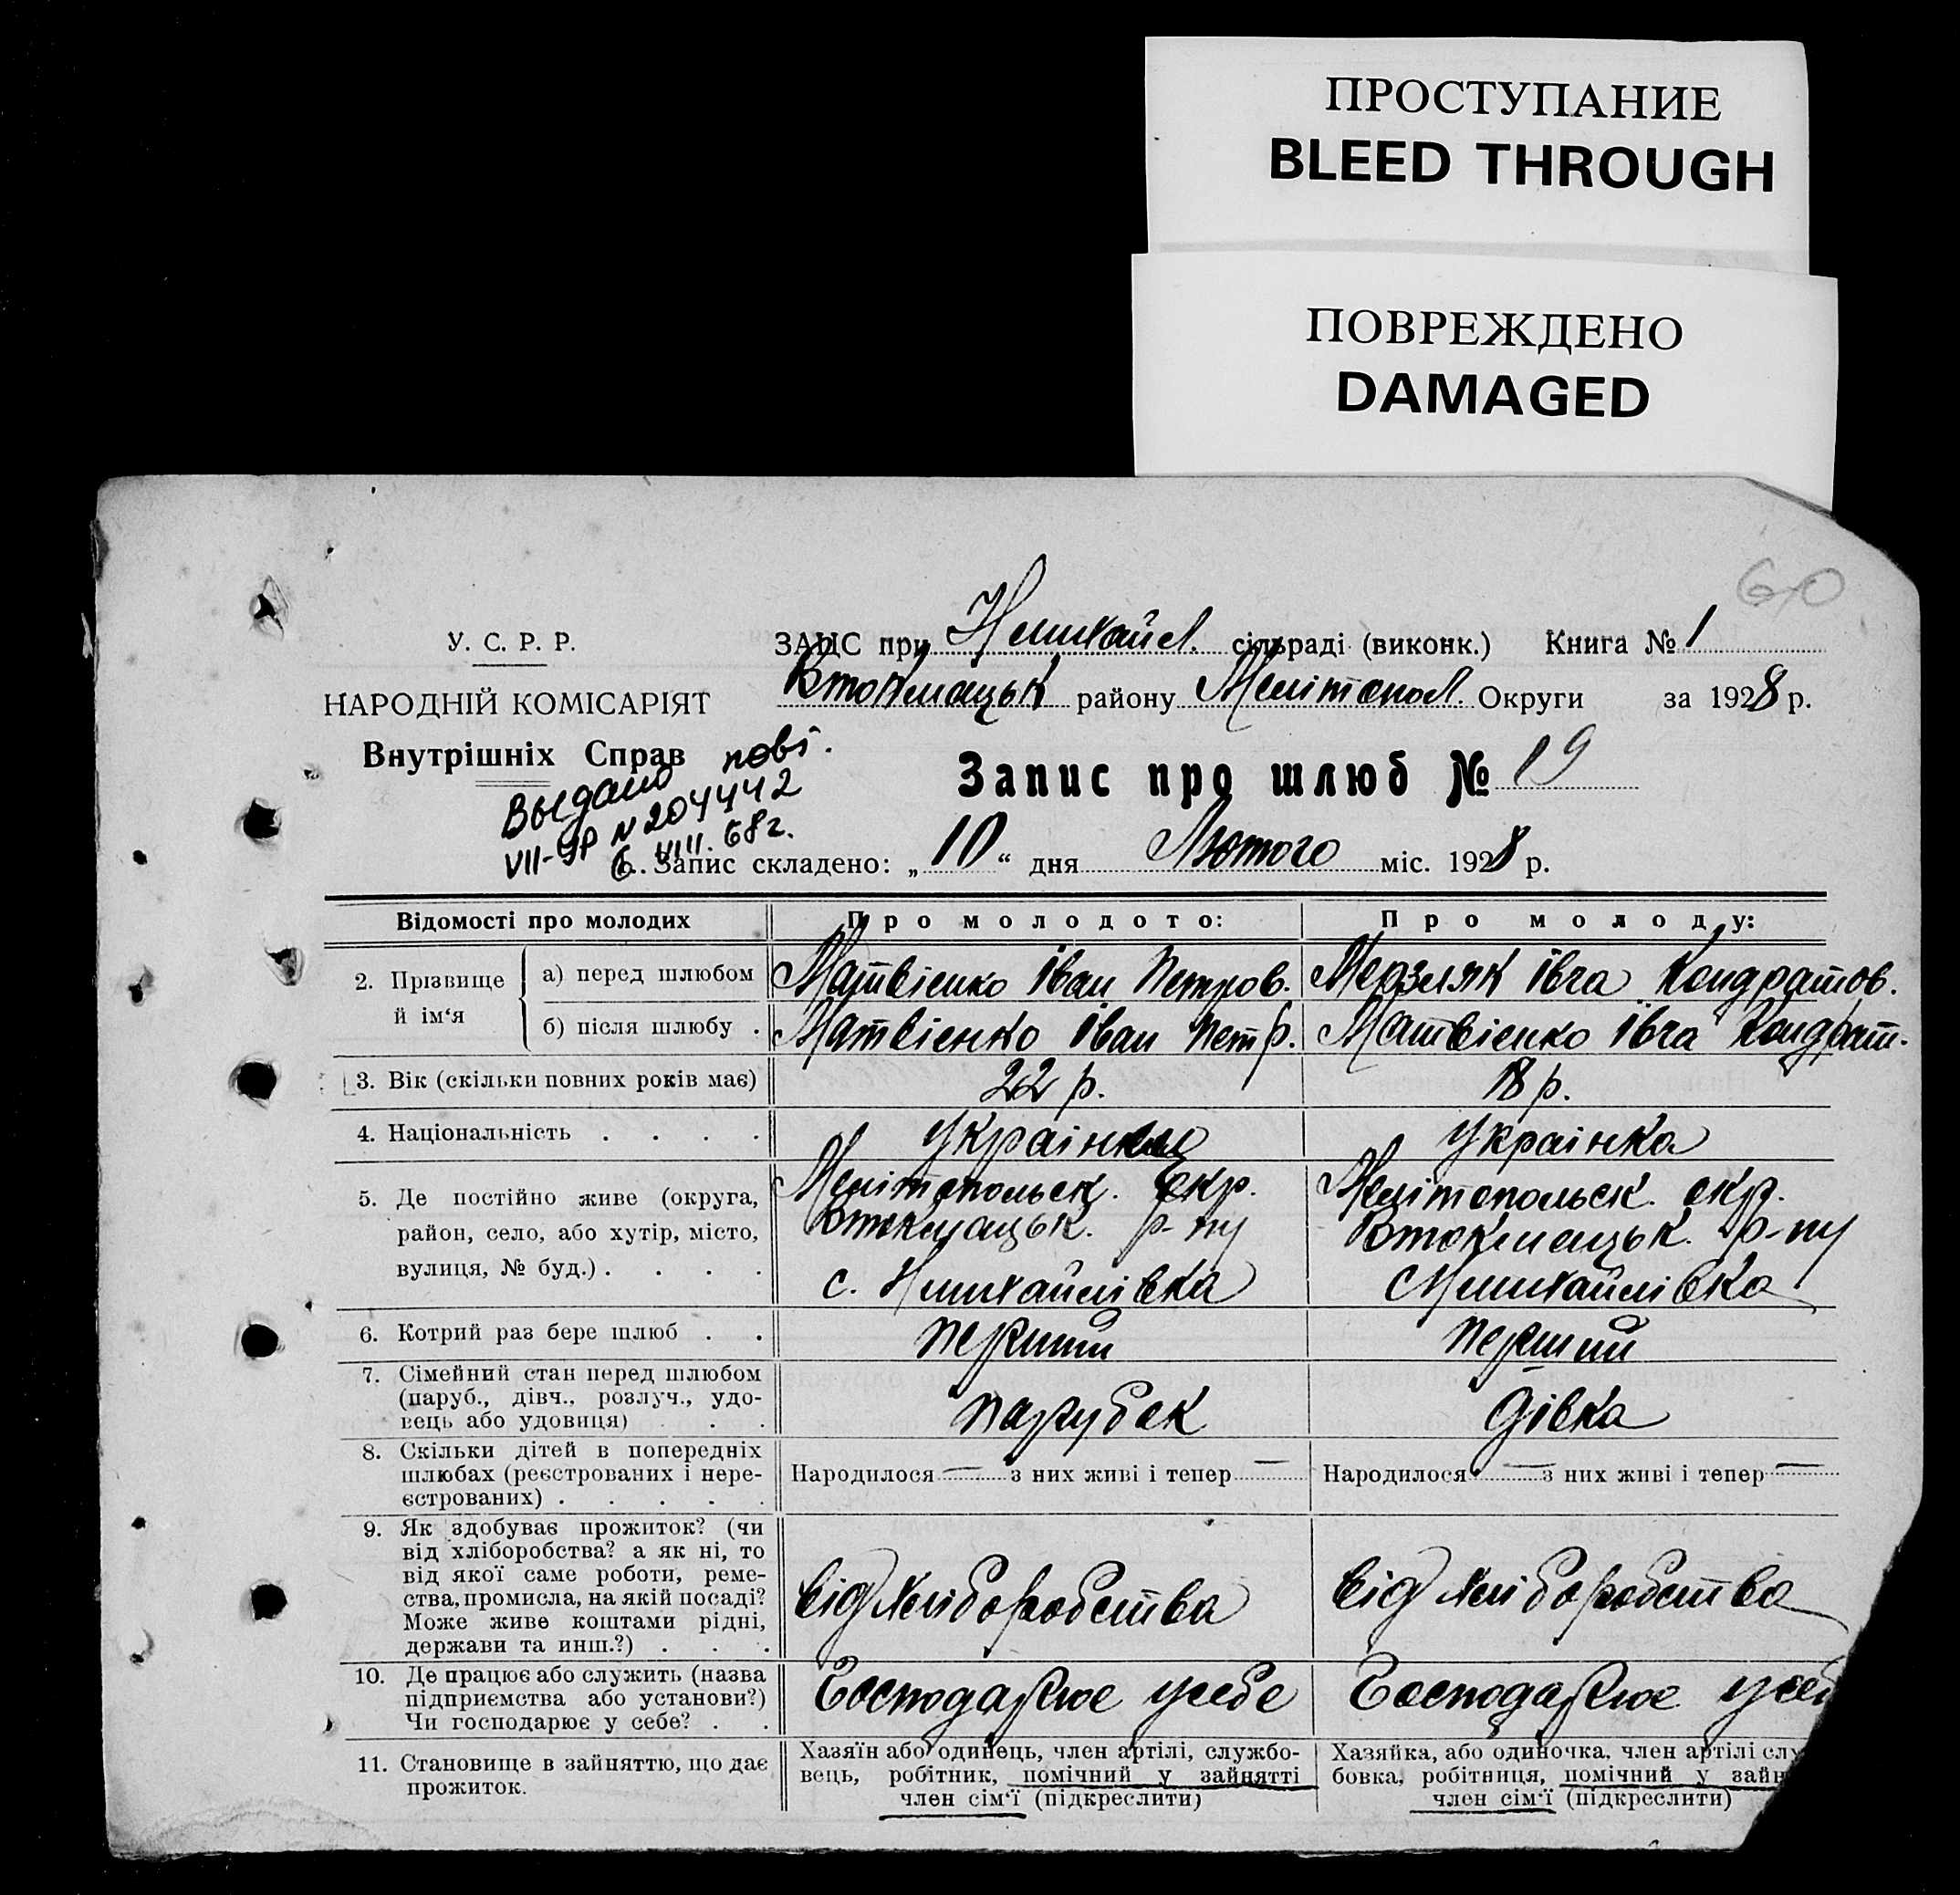 ПРОСТУПАНИЕ
BLEED THROUGH
ПОВРЕЖДЕНО
DAMAGED
60
У. С. Р. Р.
ЗАЦС при Н михайл. сільраді (виконк.) Книга № 1
НАРОДНІЙ КОМІСАРІЯТ
Втокмацьк району Мелітопол. Округи за 1928 р.
Внутрішніх Справ
Выдано повт.
VII-ЯР N 204442
6. VIII. 68 г.
Запис про шлюб № 19
1. Запис складено: „10“ дня Лютого міс. 1928 р.
Відомості про молодих
Про молодого:
Про молоду:
2. Прізвище й ім‘я
а) перед шлюбом
Матвієнко Іван Петров.
Мерзляк Івга Кондратов.
б) після шлюбу .
Матвієнко Іван Петр.
Матвієнко Івга Кондрат.
3. Вік (скільки повних років має)
22 р.
18 р.
4. Національність . . . .
Україка
5. Де постійно живе (округа,
район, село, або хутір, місто,
вулиця, № буд.) . . . .
Мелітопольськ. Окр.
Втокмацьк. р-ну
с. Н михайлівка
Мелітопольськ. окр.
Втокмацьк. р-ну
с Н михайлівка
6. Котрий раз бере шлюб . .
перший
перший
7. Сімейний стан перед шлюбом
(паруб., дівч., розлуч., удо-
вець або удовиця) . .
парубок
дівка
8. Скільки дітей в попередніх
шлюбах (реєстрованих і нере-
єстрованих) . . . . .
Народилося — з них живі і тепер —
Народилося — з них живі і тепер —
9. Як здобуває прожиток? (чи
від хліборобства? а як ні, то
від якої саме роботи, реме-
ства, промисла, на якій посаді?
Може живе коштами рідні,
держави та инш.?) . . .
від хліборобства
від хліборобства
10. Де працює або служить (назва
підприємства або установи?)
Чи господарює у себе? . .
Господарює у себе
Господарює у себ
11. Становище в зайняттю, що дає
прожиток.
Хазяїн або одинець, член артілі, службо-
вець, робітник, помічний у зайнятті
член сім‘ї (підкреслити)
Хазяйка, або одиночка, член артілі слу
бовка, робітниця, помічний у зайн
член сім‘ї (підкреслити)